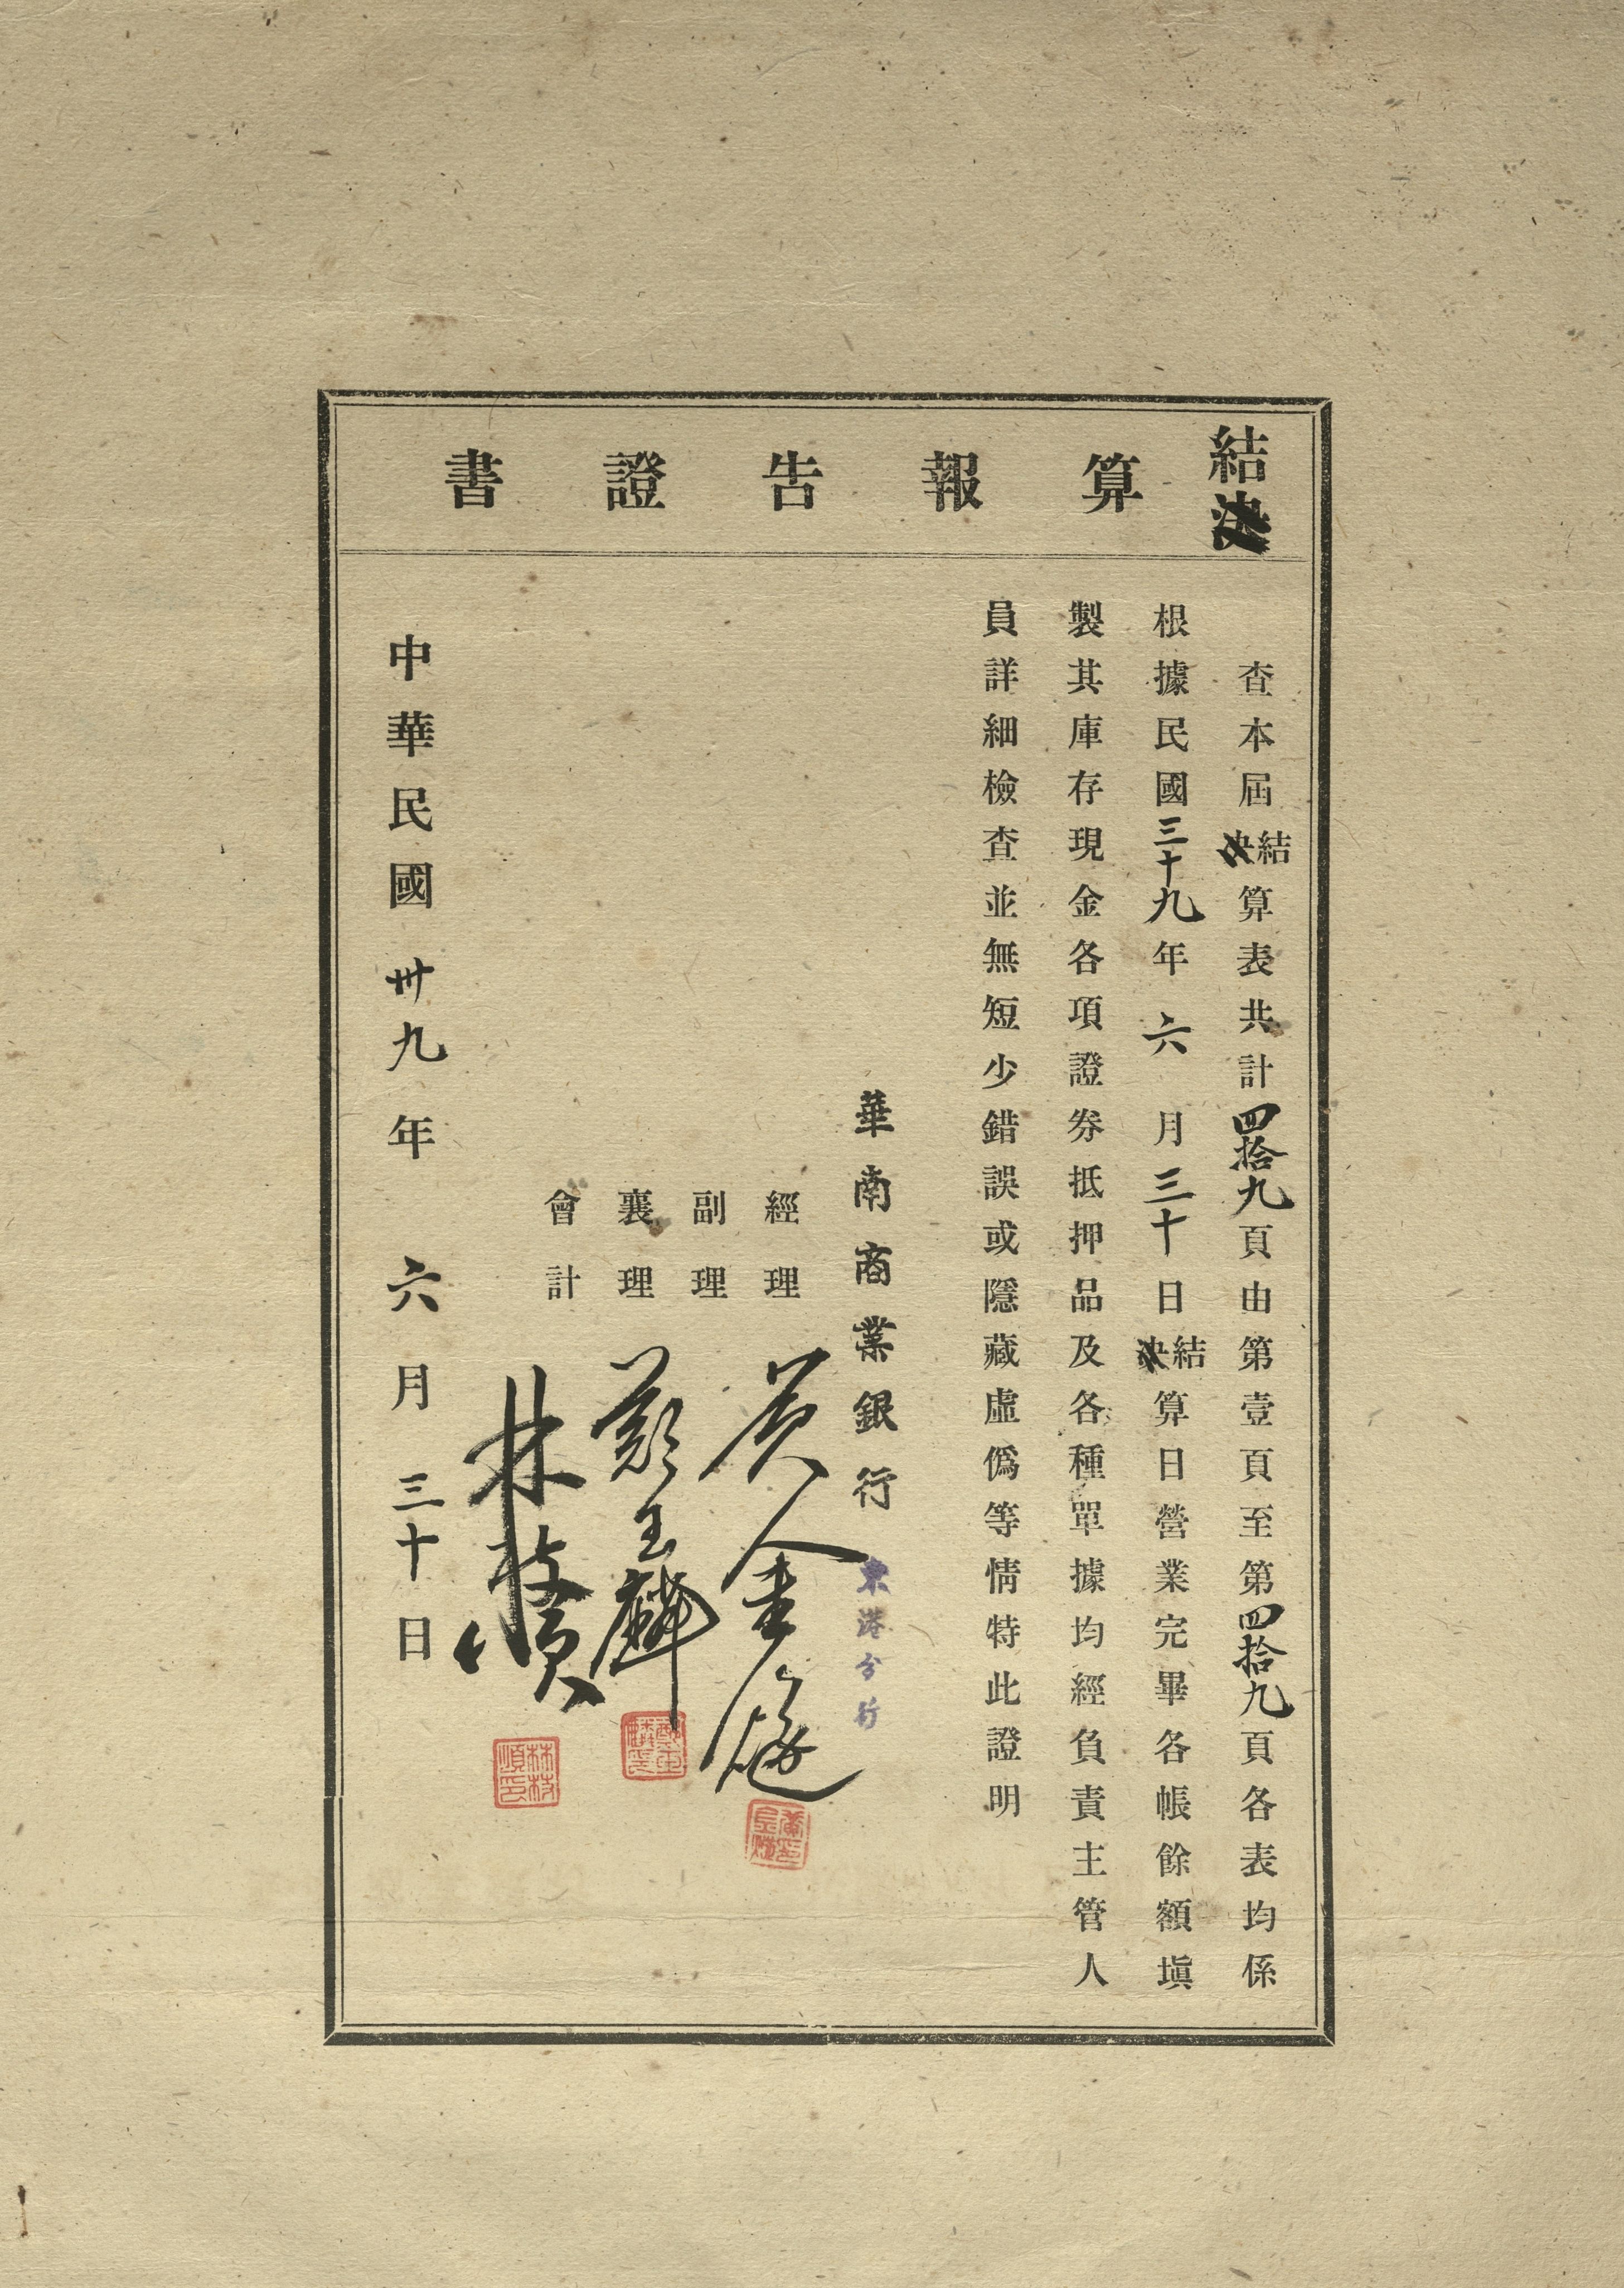 結算報告證書
查本屆結算表共計四拾九頁由第壹頁至第四拾九頁各表均係
根據民國三十九年六月三十日結算日營業完畢各帳餘額塡
製其庫存現金各項證券抵押品及各種單據均經負責主管人
員詳細檢查並無短少錯誤或隱藏虛僞等情特此證明
華南商業銀行 東港分行
經理 黃金
副理
襄理 鄭玉麟
會計 林枝順
中華民國卅九年六月三十日
林枝順印
鄭玉麟印